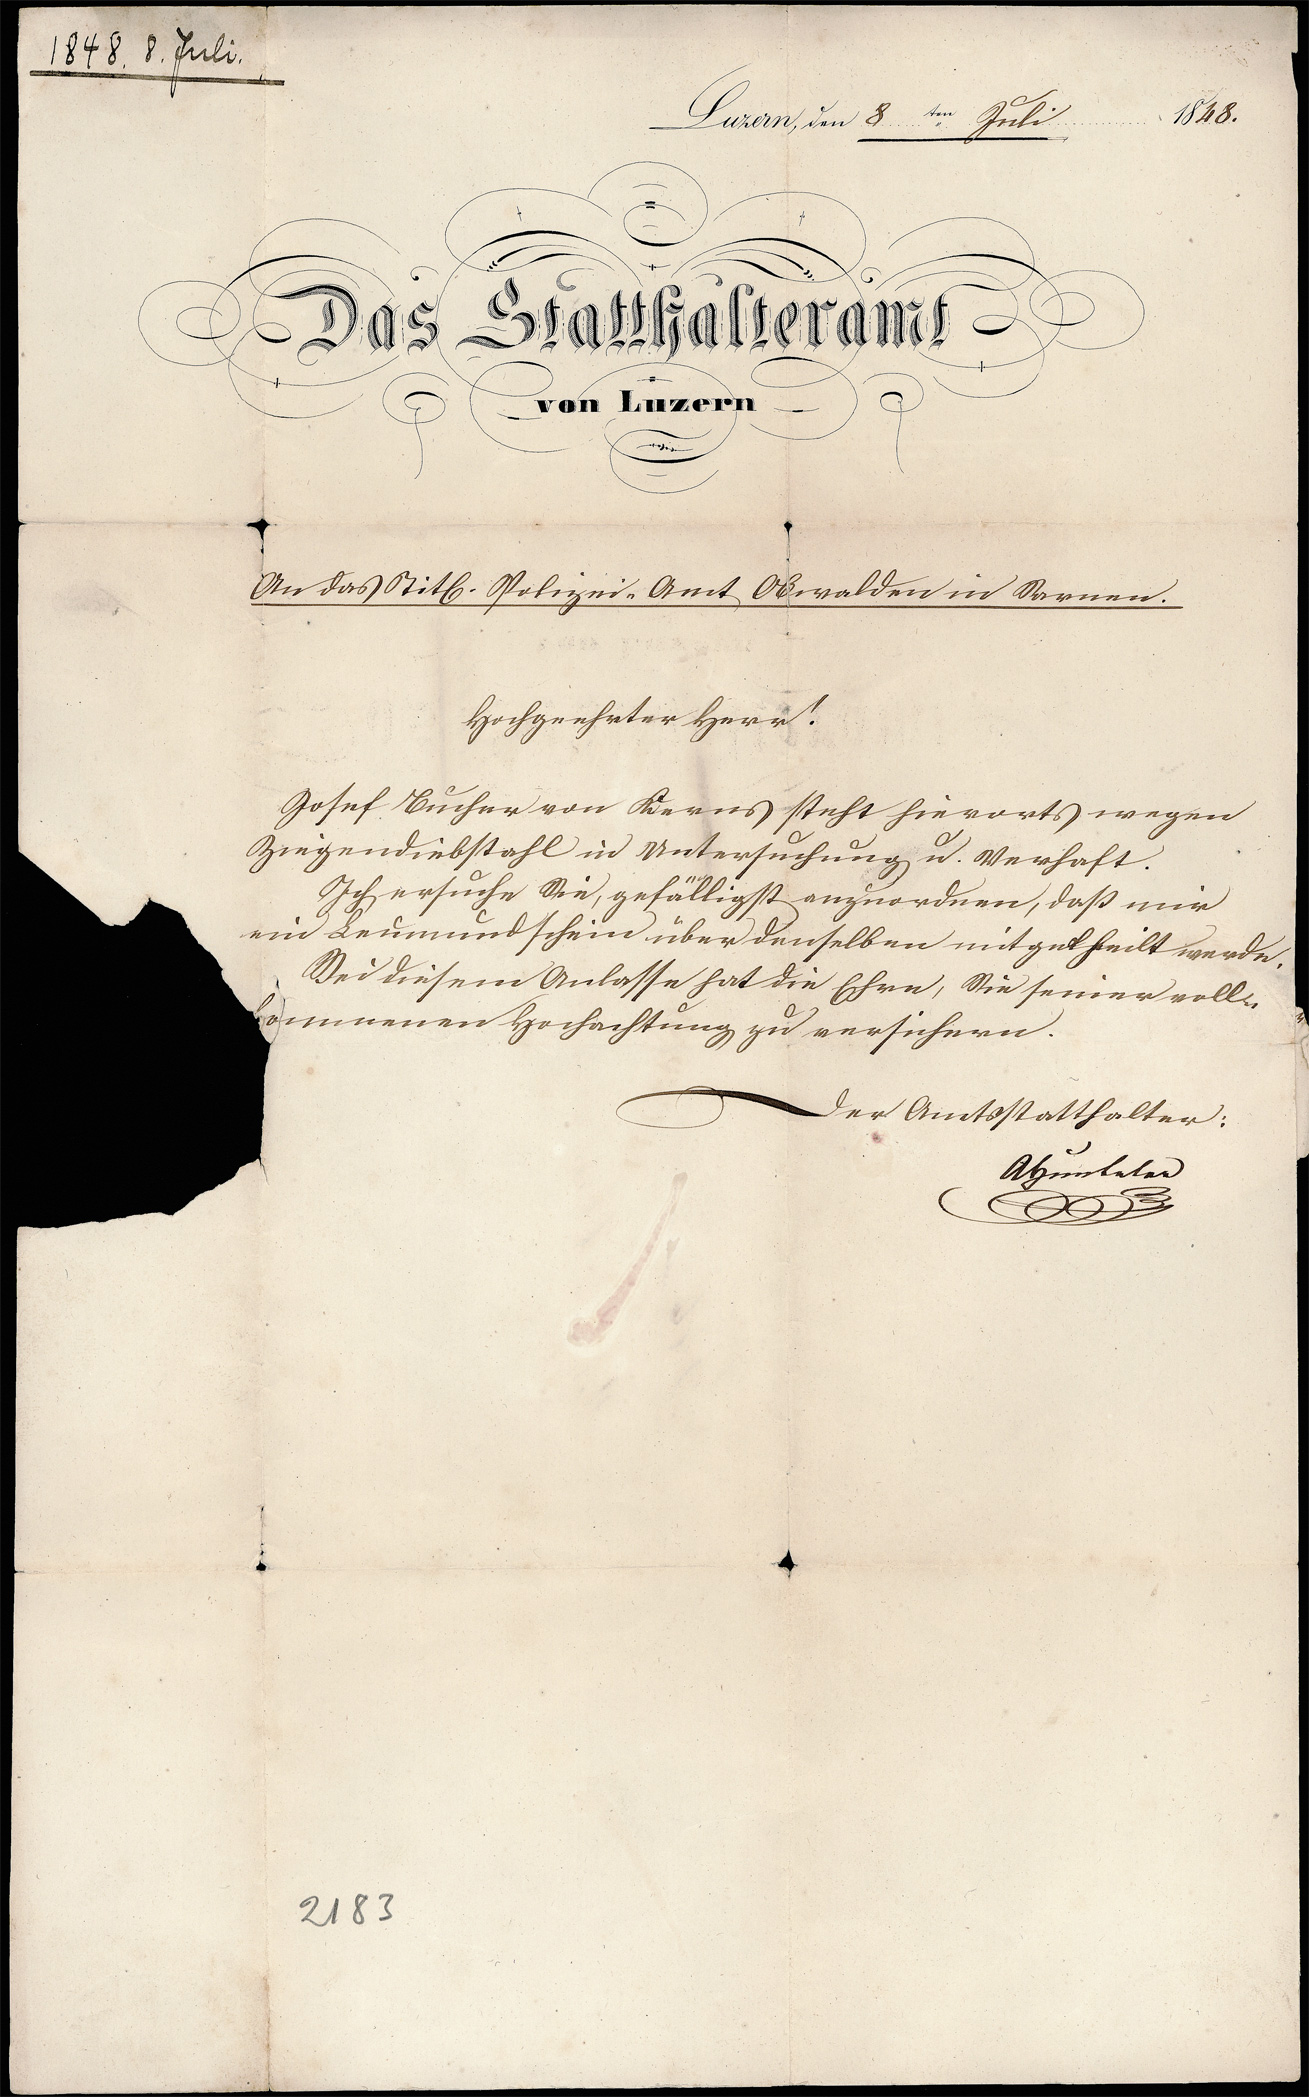 1848. 8. Juli.
Luzern, den 8 ten Juli 1848.
Das Statthalteramt
von Luzern
An das Titl. Polizei-Amt Obwalden in Sarnen.
Hochgeehrter Herr!
Josef Bucher von Kerns steht hierorts wegen
Ziegendiebstahl in Untersuchung u. Verhaft.
Ich ersuche Sie, gefälligst anzuordnen, daß mir
ein Leumundschein über denselben mitgetheilt werde.
Bei diesem Anlasse hat die Ehre, Sie seiner voll-
kommenen Hochachtung zu versichern.
Der Amtsstatthalter:
2183